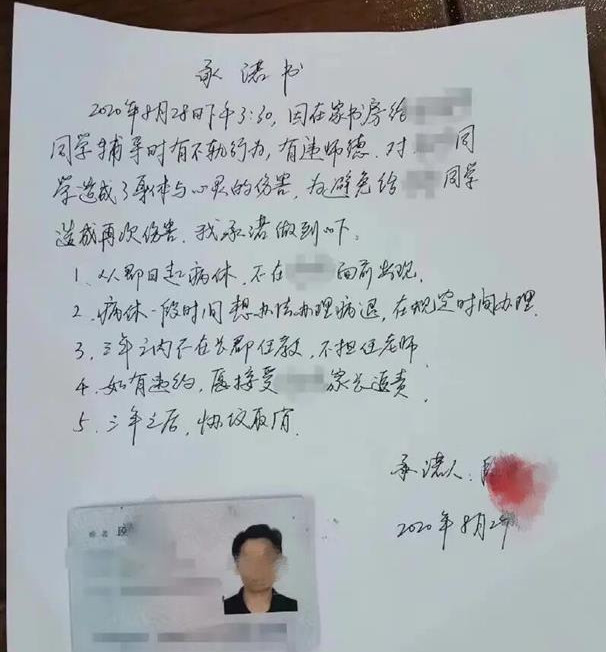 承诺书
2020年8月28日下午3:30,因在家书房给
同学辅导时有不轨行为,有违师德.对 同
学造成了身体与心灵的伤害.为避免给 同学
造成再次伤害.我承诺做到如下:
1、从即日起病休,不在 面前出现.
2、病休一段时间想办法办理病退,在规定时间办理.
3、三年之内不在长郡任教,不担任老师.
4、如有违约,愿接受 家长追责.
5、三年之后,协议取消.
承诺人:
2020年8月2
姓名 段